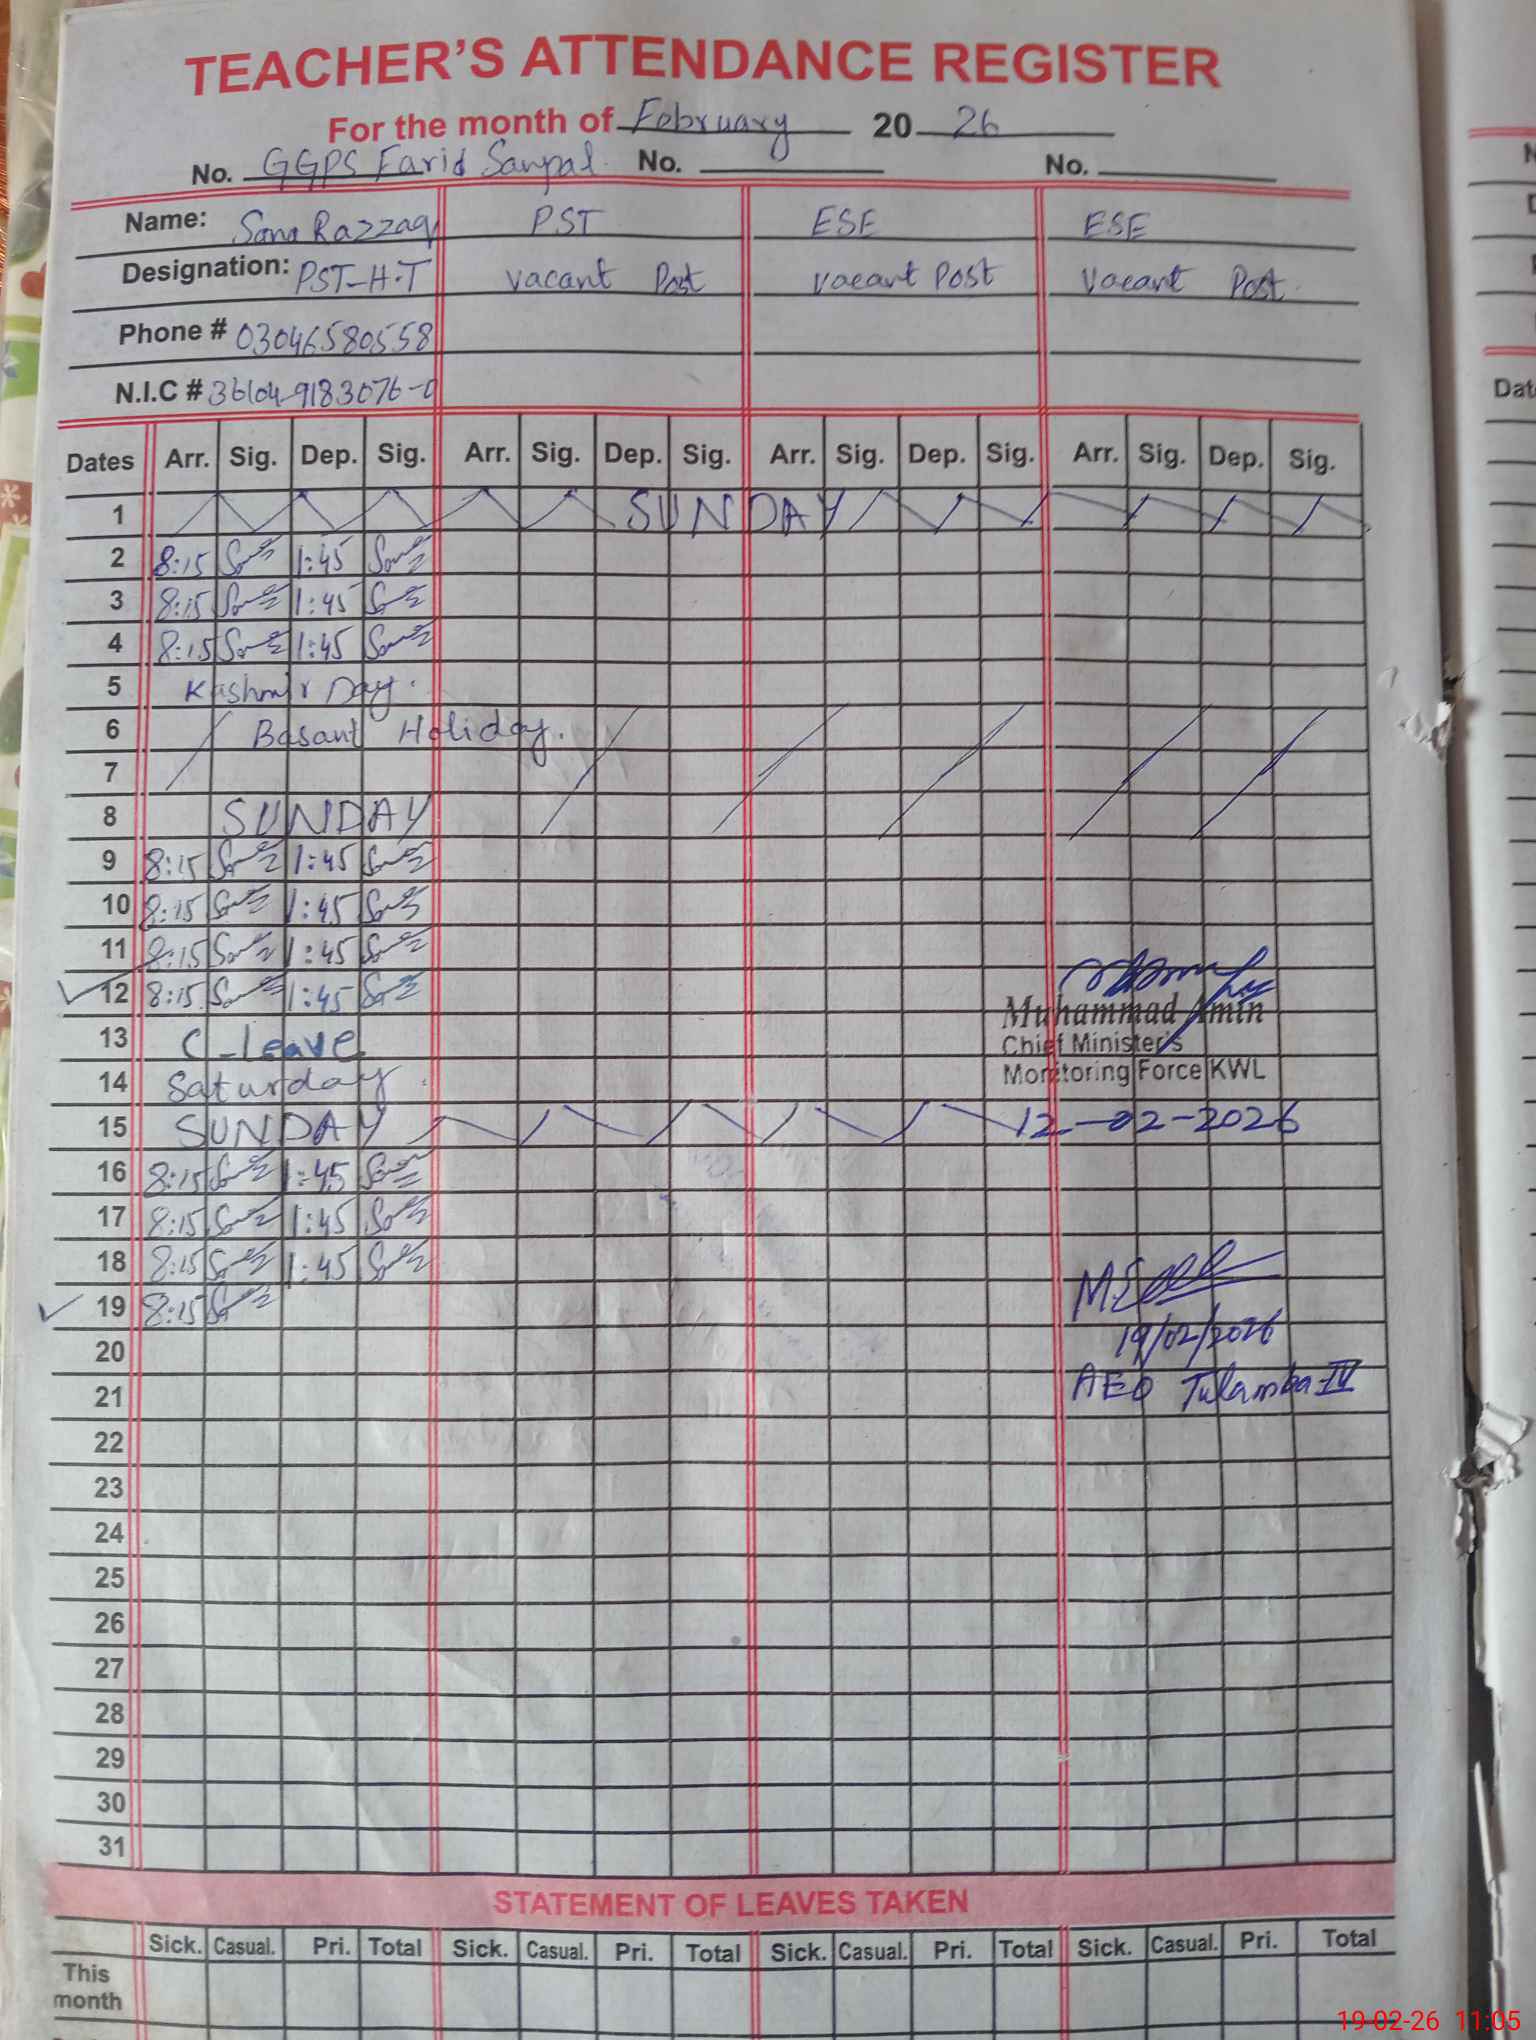 TEACHER'S ATTENDANCE REGISTER
For the month of February 20 26
No. GGPS Farid Sanpal. No. No.
Name: Sana Razzaq PST ESE ESE
Designation: PST-H.T vacant Post vacant Post Vacant Post.
Phone # 03046580558
N.I.C # 36104-9183076-0
Dates Arr. Sig. Dep. Sig. Arr. Sig. Dep. Sig. Arr. Sig. Dep. Sig. Arr. Sig. Dep. Sig.
1 SUNDAY
2 8:15 1:45
3 8:15 1:45
4 8:15 1:45
5 Kashmir Day.
6 Basant Holiday.
7
8 SUNDAY
9 8:15 1:45
10 8:15 1:45
11 8:15 1:45
12 8:15 1:45 Muhammad Amin
13 C-Leave Chief Minister's
14 Saturday Monitoring Force KWL
15 SUNDAY 12-02-2026
16 8:15 1:45
17 8:15 1:45
18 8:15 1:45
19 8:15
20 19/02/2026
21 AEO Tulamba-IV
22
23
24
25
26
27
28
29
30
31
STATEMENT OF LEAVES TAKEN
Sick. Casual. Pri. Total Sick. Casual. Pri. Total Sick. Casual. Pri. Total Sick. Casual. Pri. Total
This
month
19-02-26 11:05
Dat